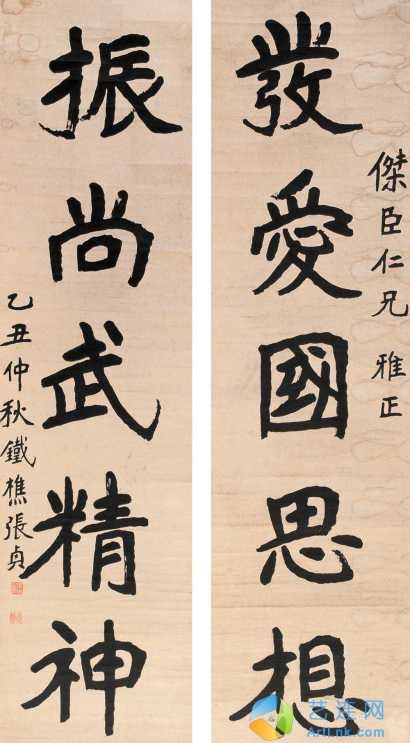 傑臣仁兄 雅正
發愛國思想
振尚武精神
乙丑仲秋鐵樵張貞
艺连网
ArtLnk.com